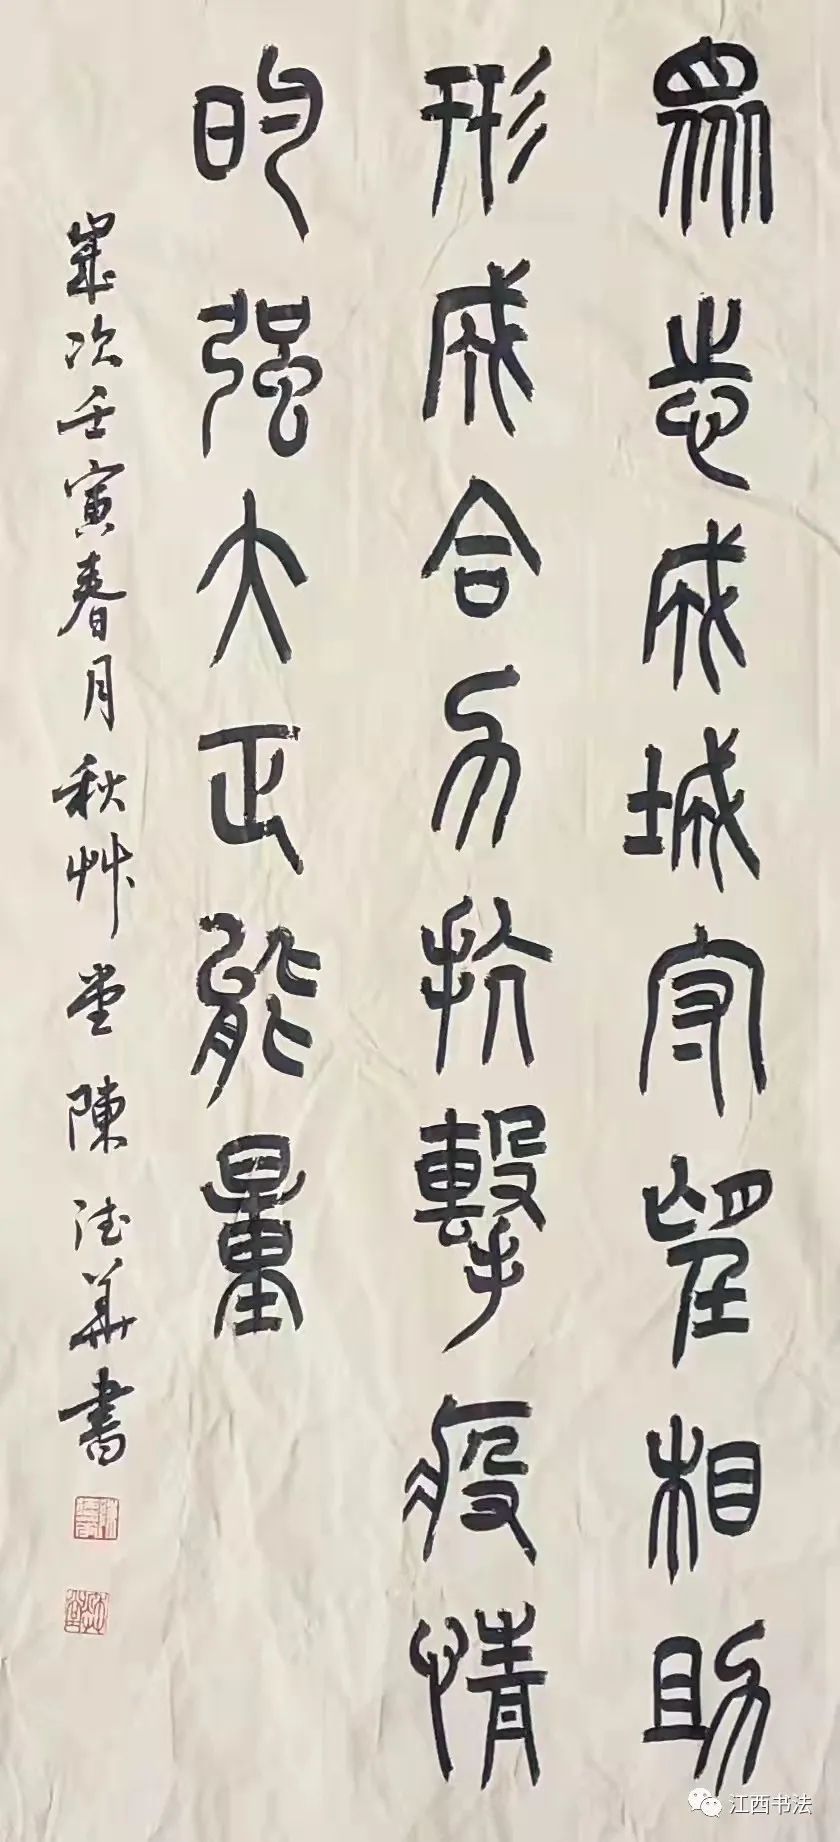 眾志成城守望相助
形成合力抗擊疫情
的强大正能量
歲次壬寅春月秋艸堂陳德華書
江西书法